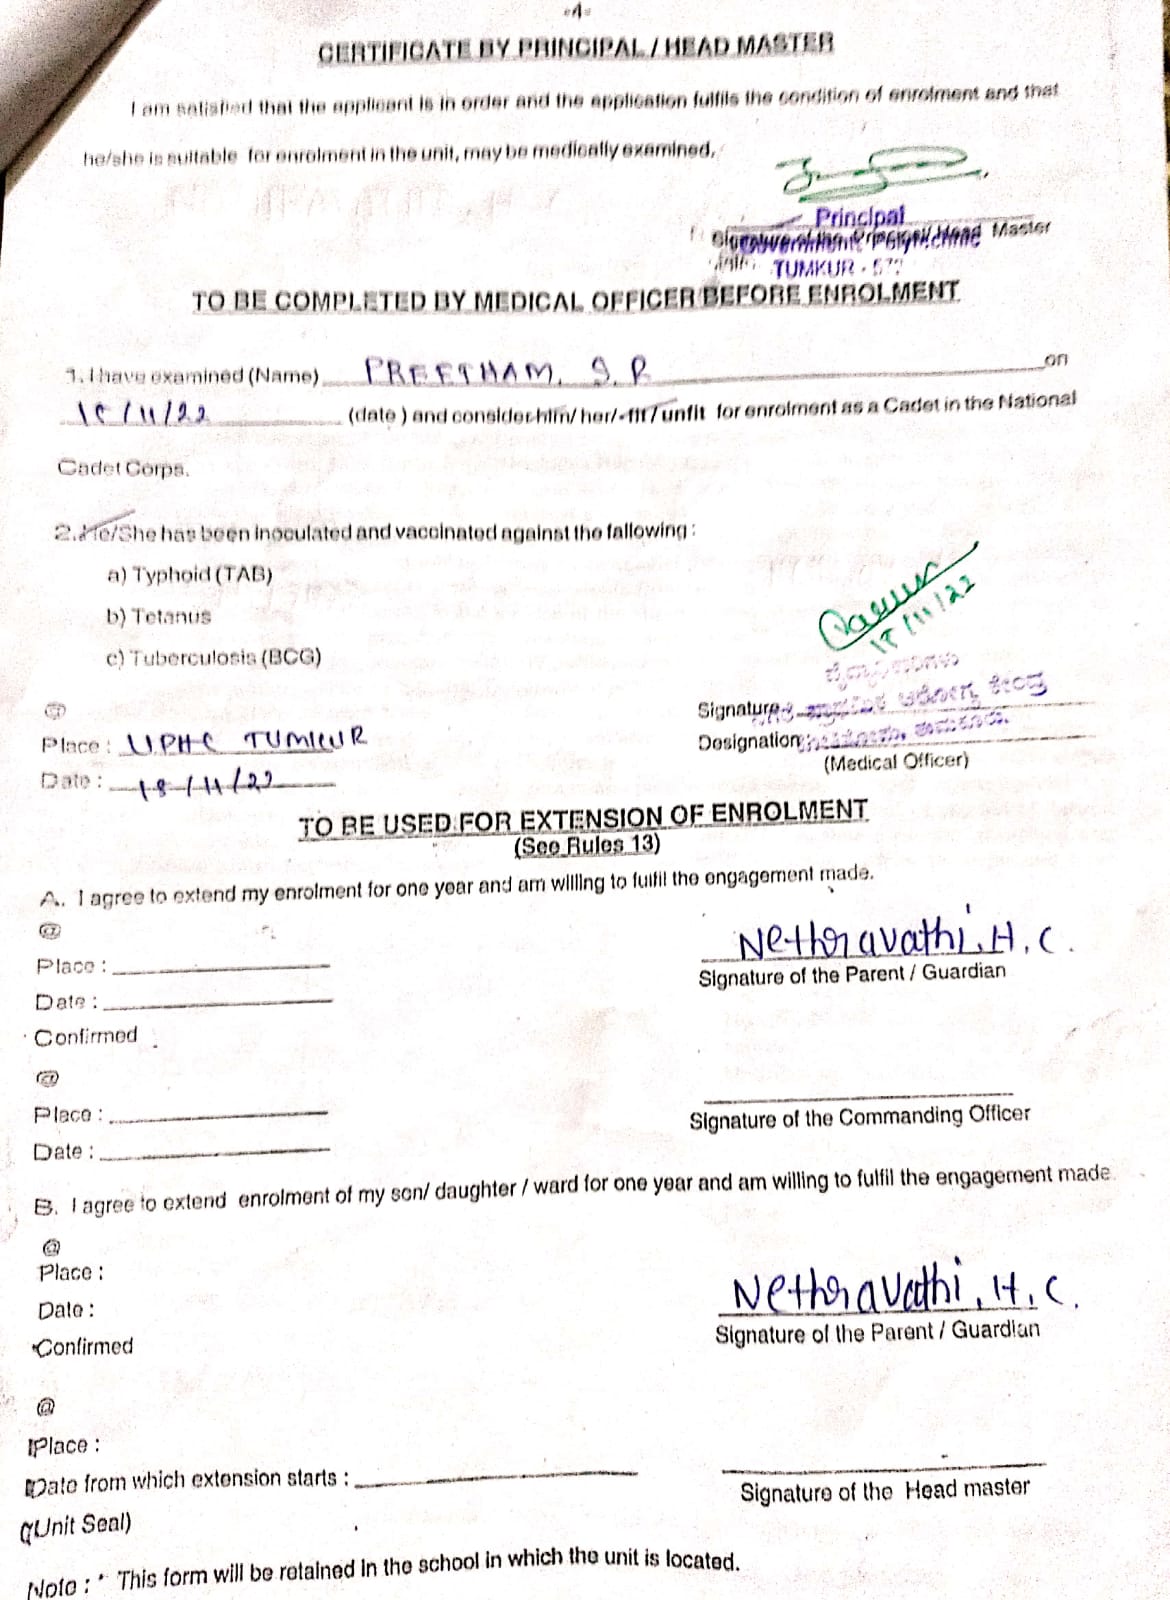 -4-
CERTIFICATE BY PRINCIPAL / HEAD MASTER
I am satisfied that the applicant is in order and the application fulfils the condition of enrolment and that
he/she is suitable for enrolment in the unit, may be medically examined.
Principal
Signature of the Principal/ Head Master
TUMKUR -
TO BE COMPLETED BY MEDICAL OFFICER BEFORE ENROLMENT
1. I have examined (Name) PREETHAM. S. R on
/11/22 (date ) and consider him/ her/ fit / unfit for enrolment as a Cadet in the National
Cadet Corps.
2. He/She has been inoculated and vaccinated against the fallowing :
a) Typhoid (TAB)
b) Tetanus
c) Tuberculosis (BCG)
/11/22
ಆರೋಗ್ಯ ಕೇಂದ್ರ
@
Signature
Place : UPHC TUMKUR
Designation
(Medical Officer)
Date : 18/11/22
TO BE USED FOR EXTENSION OF ENROLMENT
(See Rules 13)
A. I agree to extend my enrolment for one year and am willing to fulfil the engagement made.
@
Nethravathi. H. C.
Place :
Signature of the Parent / Guardian
Date :
Confirmed
@
Place :
Signature of the Commanding Officer
Date :
B. I agree to extend enrolment of my son/ daughter / ward for one year and am willing to fulfil the engagement made.
@
Place :
Nethravathi. H. C.
Date :
Signature of the Parent / Guardian
Confirmed
@
Place :
Date from which extension starts :
Signature of the Head master
(Unit Seal)
Note : * This form will be retained in the school in which the unit is located.